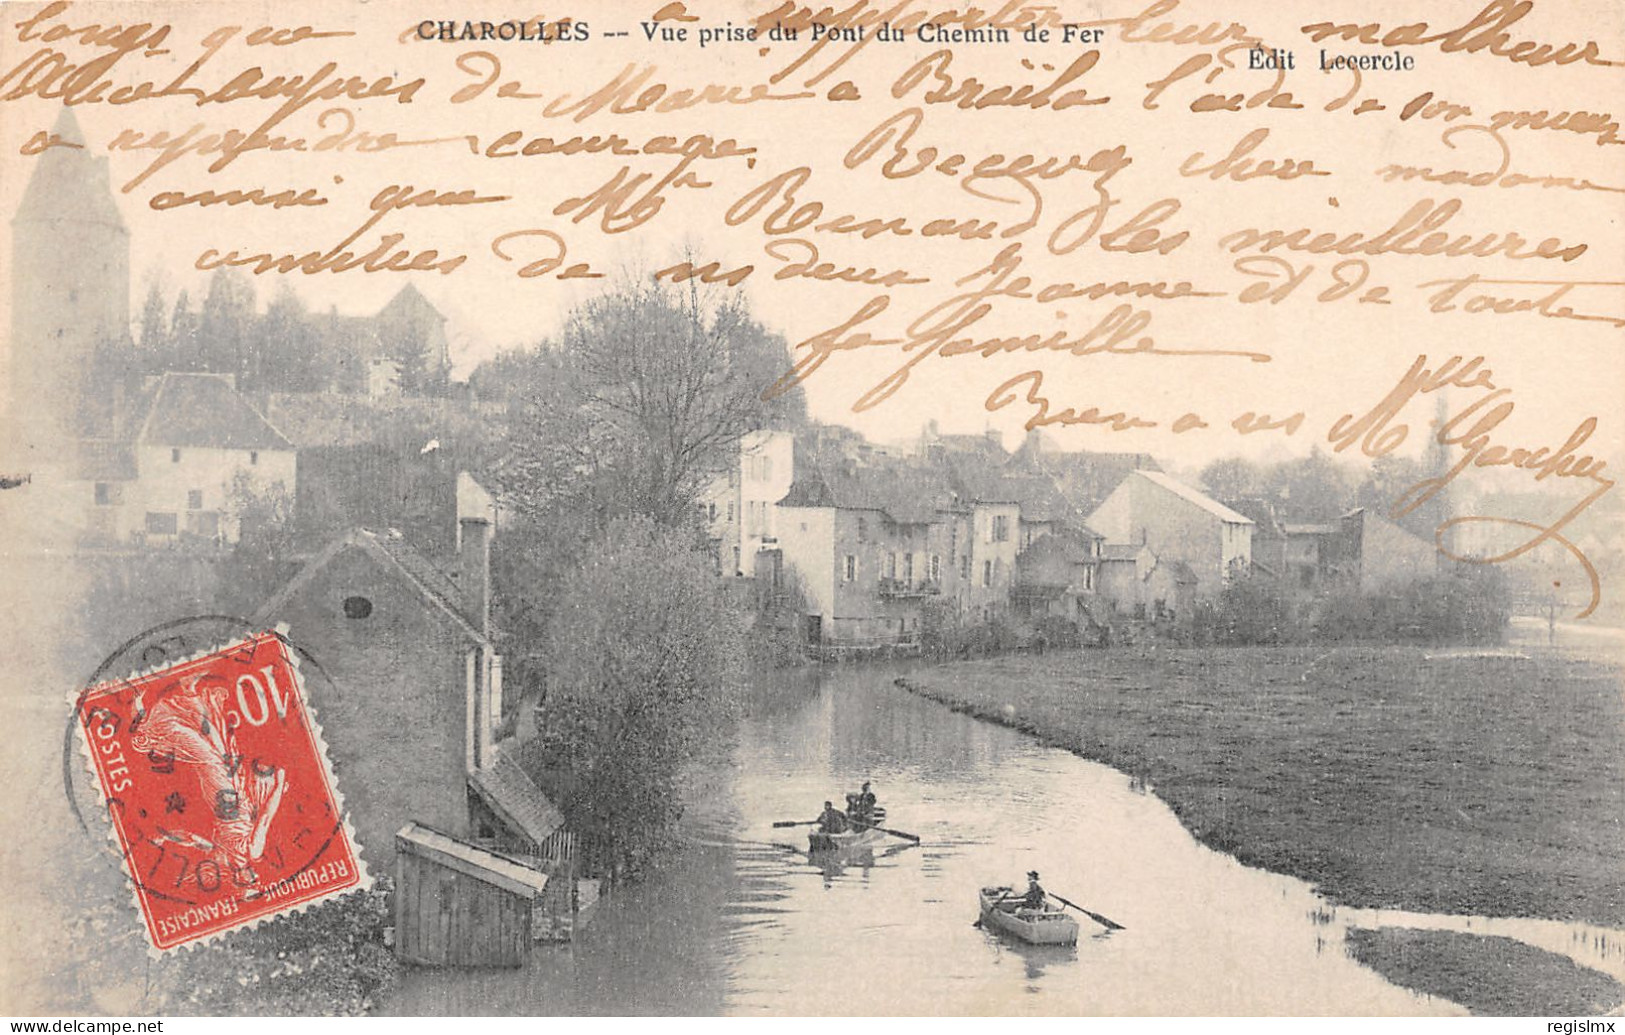 longs que a supporter leur malheur
CHAROLLES -- Vue prise du Pont du Chemin de Fer
Édit Lecercle
auprès de Marie a Braïla l'aide de son mieux
a reprendre courage. Recevez chère madame
ainsi que Mr Renaud les meilleures
amitiés de ns deux Jeanne et de toute
fa famille
Bien a vs Mlle Garchey
10c
POSTES
REPUBLIQUE FRANÇAISE
CHAROLLES
regislmx